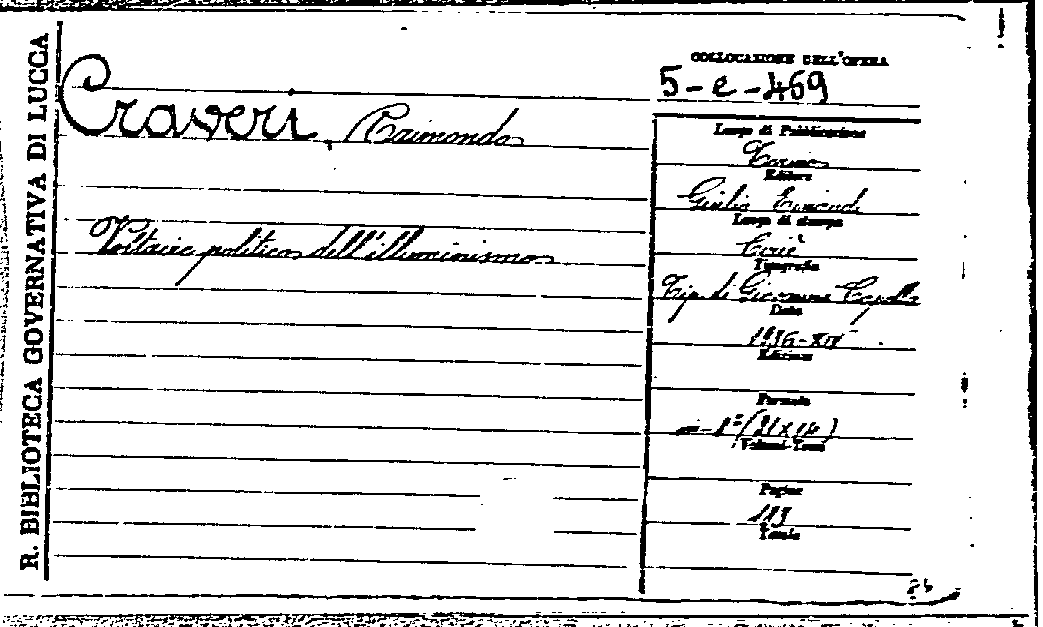 R. BIBLIOTECA GOVERNATIVA DI LUCCA
Craveri, Raimondo
Voltaire politico dell'illuminismo
COLLOCAZIONE DELL'OPERA
5-e-469
Luogo di Pubblicazione
Torino
Editore
Giulio Einaudi
Luogo di stampa
Ciriè
Tipografia
Tip. di Giovanni Capella
Data
1936-XIV
Edizione
Formato
in-8° (21x14)
Volumi-Tomi
Pagine
113
Tavole